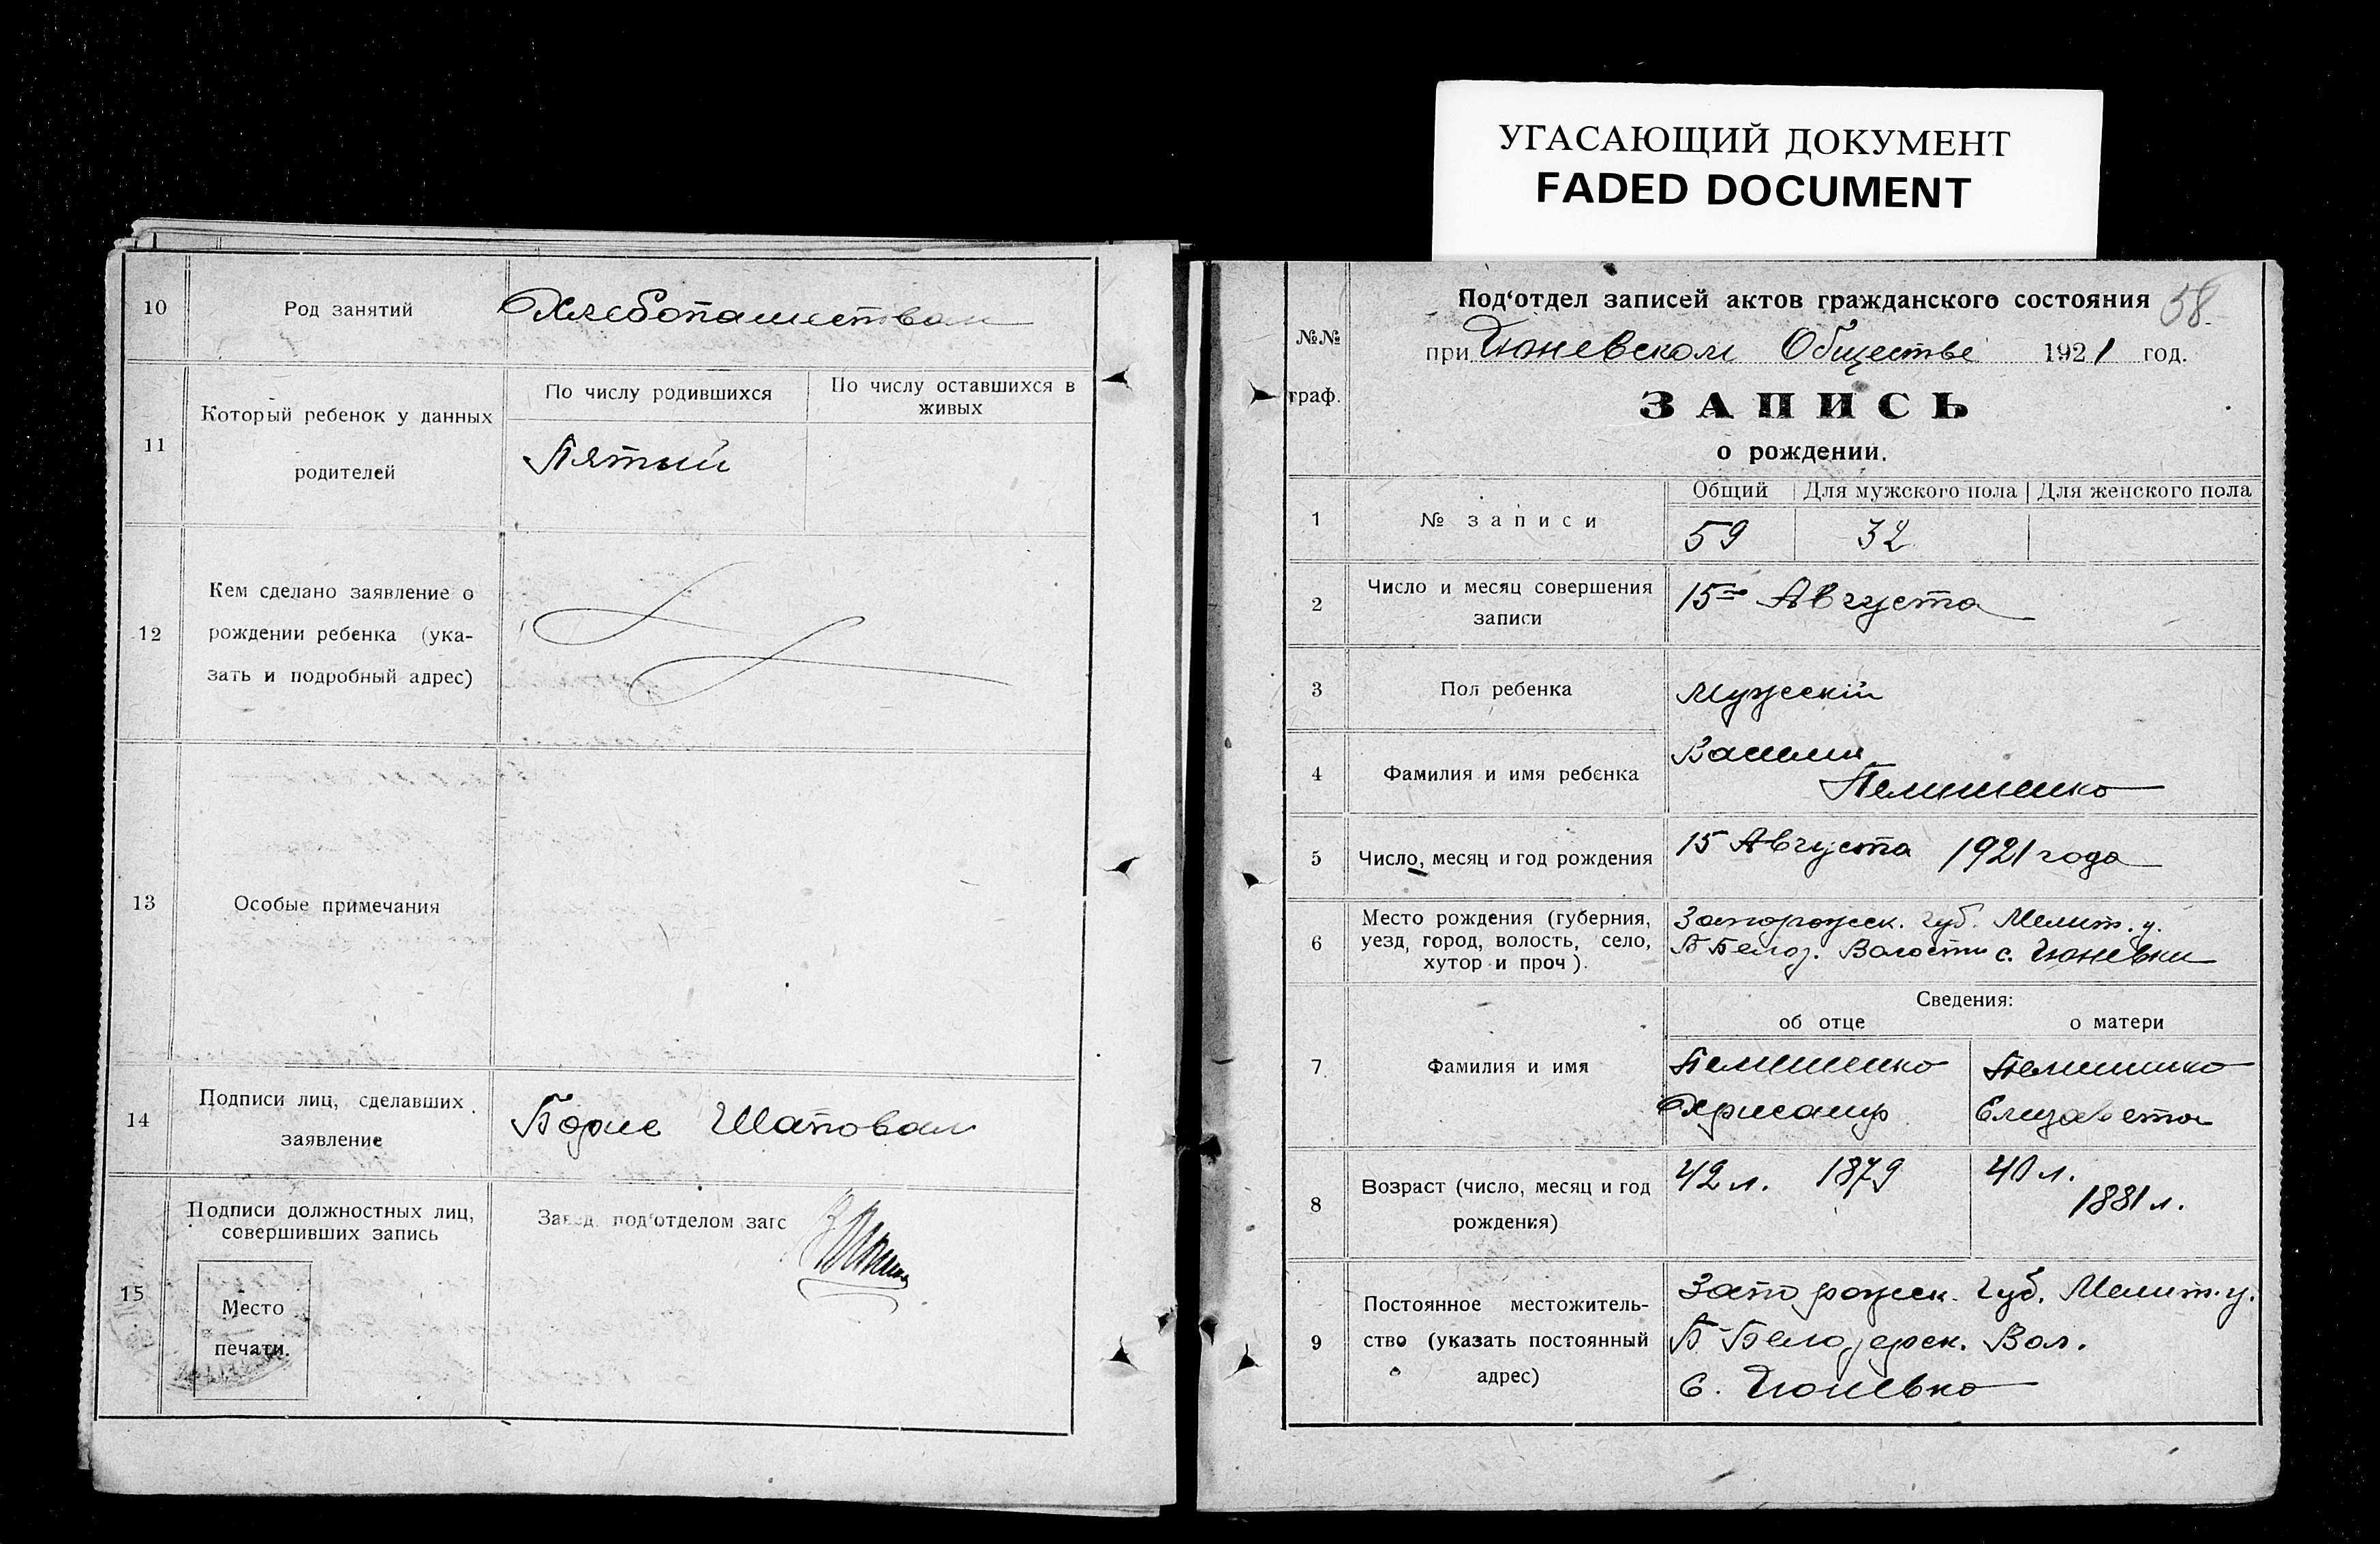 УГАСАЮЩИЙ ДОКУМЕНТ
FADED DOCUMENT
10
Род занятий
Хлебопашеством
11
Который ребенок у данных
родителей
По числу родившихся
По числу оставшихся в
живых
Пятый
12
Кем сделано заявление о
рождении ребенка (ука-
зать и подробный адрес)
13
Особые примечания
14
Подписи лиц, сделавших
заявление
Борис Шаповал
15
Подписи должностных лиц,
совершивших запись
Место
печати.
Завед. под'отделом загс
58
№№
граф.
Под'отдел записей актов гражданского состояния
при Гюневском Обществе 1921 год.
ЗАПИСЬ
о рождении.
1
№ записи
Общий Для мужского пола Для женского пола
59 32
2
Число и месяц совершения
записи
15го Августа
3
Пол ребенка
Мужескій
4
Фамилия и имя ребенка
Василий
5
Число, месяц и год рождения
15 Августа 1921 года
6
Место рождения (губерния,
уезд, город, волость, село,
хутор и проч).
Запорожск. губ. Мелит. у.
Б Белоз. Волости с. Гюневки
7
Фамилия и имя
Сведения:
об отце о матери
Елизавета
8
Возраст (число, месяц и год
рождения)
42 л. 1879
40 л.
1881 л.
9
Постоянное местожитель-
ство (указать постоянный
адрес)
Запорожск. губ. Мелит. у.
Б-Белозерск. Вол.
с. Гюневка